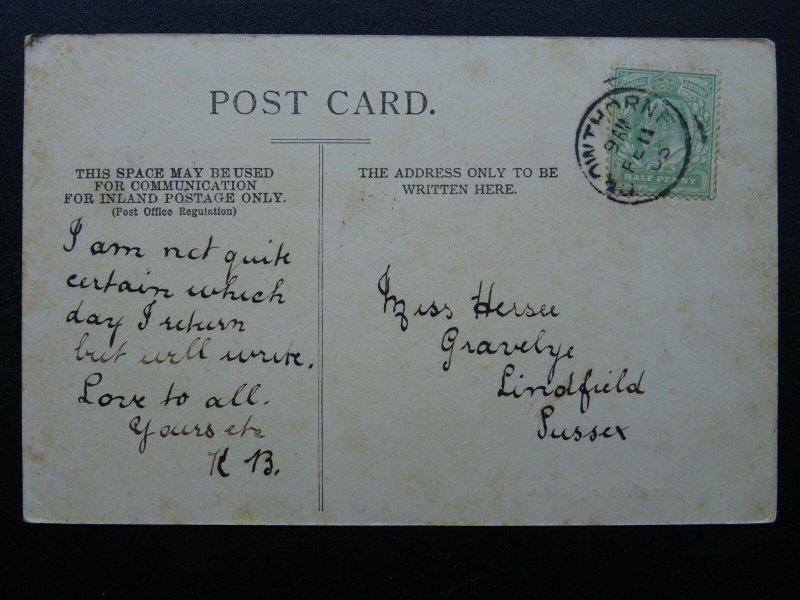 POST CARD.
THIS SPACE MAY BE USED
FOR COMMUNICATION
FOR INLAND POSTAGE ONLY.
(Post Office Regulation)
THE ADDRESS ONLY TO BE
WRITTEN HERE.
I am not quite
certain which
day I return
but will write.
Love to all.
Yours etc
K B.
Miss Hersee
Gravelye
Lindfield
Sussex
9 AM
FE 11
HALF PENNY